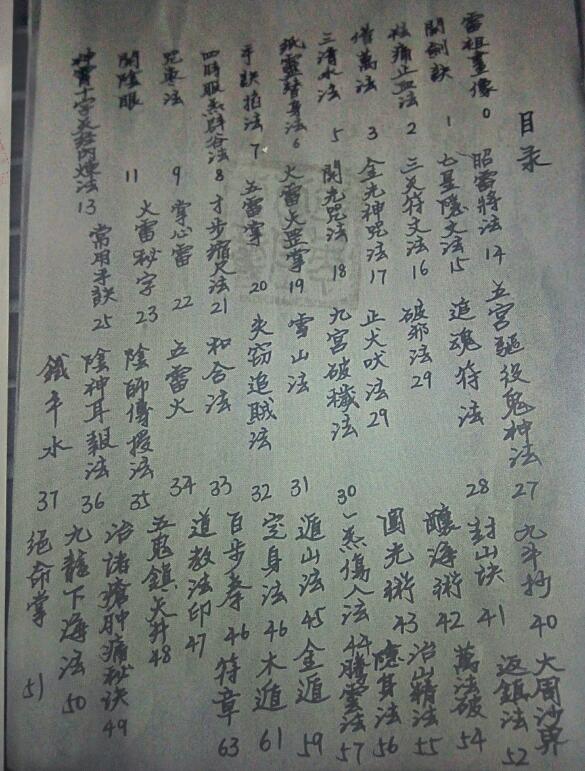 目录
雷祖畫像 0
開劍訣 1
祛痛止血法 2
借萬法 3
三清水法 5
紙靈替身法 6
手訣招法 7
四時服炁辟谷法 8
咒棗法 9
開陰眼 11
神霄十字天经内煉法 13
昭雷將法 14
七星隱文法 15
三炁符文法 16
金光神咒法 17
開光咒法 18
火雷火罡掌 19
五雷掌 20
寸步缩尺法 21
掌心雷 22
火雷秘字 23
常用手訣 25
五宫驅役鬼神法 27
追魂符法 28
破邪法 29
止犬吠法 29
九宫破穢法 30
雪山法 31
失窃追賊法 32
和合法 33
五雷火 34
陰師傳授法 35
陰神耳報法 36
鐵牛水 37
九斗抄 40
封山訣 41
釀海術 42
圓光術 43
一炁傷人法 44
遁山法 45
定身法 46
百步拳 46
道教法印 47
五鬼鎮天升 48
治諸瘡肿痛秘诀 49
九龍下海法 50
絕命掌 51
大周沙界
返鎮法 52
萬法破 54
治山精法 55
隱身法 56
騰雲法 57
金遁 59
木遁 61
符章 63